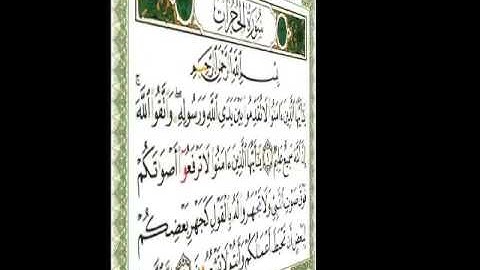 سُورَةُ الْحُجُرَاتِ
بِسْمِ اللَّهِ الرَّحْمَٰنِ الرَّحِيمِ
يَا أَيُّهَا الَّذِينَ ءَامَنُوا لَا تُقَدِّمُوا بَيْنَ يَدَيِ اللَّهِ وَرَسُولِهِ وَاتَّقُوا اللَّهَ
إِنَّ اللَّهَ سَمِيعٌ عَلِيمٌ ۝ يَا أَيُّهَا الَّذِينَ ءَامَنُوا لَا تَرْفَعُوا أَصْوَاتَكُمْ
فَوْقَ صَوْتِ النَّبِيِّ وَلَا تَجْهَرُوا لَهُ بِالْقَوْلِ كَجَهْرِ بَعْضِكُمْ
لِبَعْضٍ أَن تَحْبَطَ أَعْمَالُكُمْ وَأَنتُمْ لَا